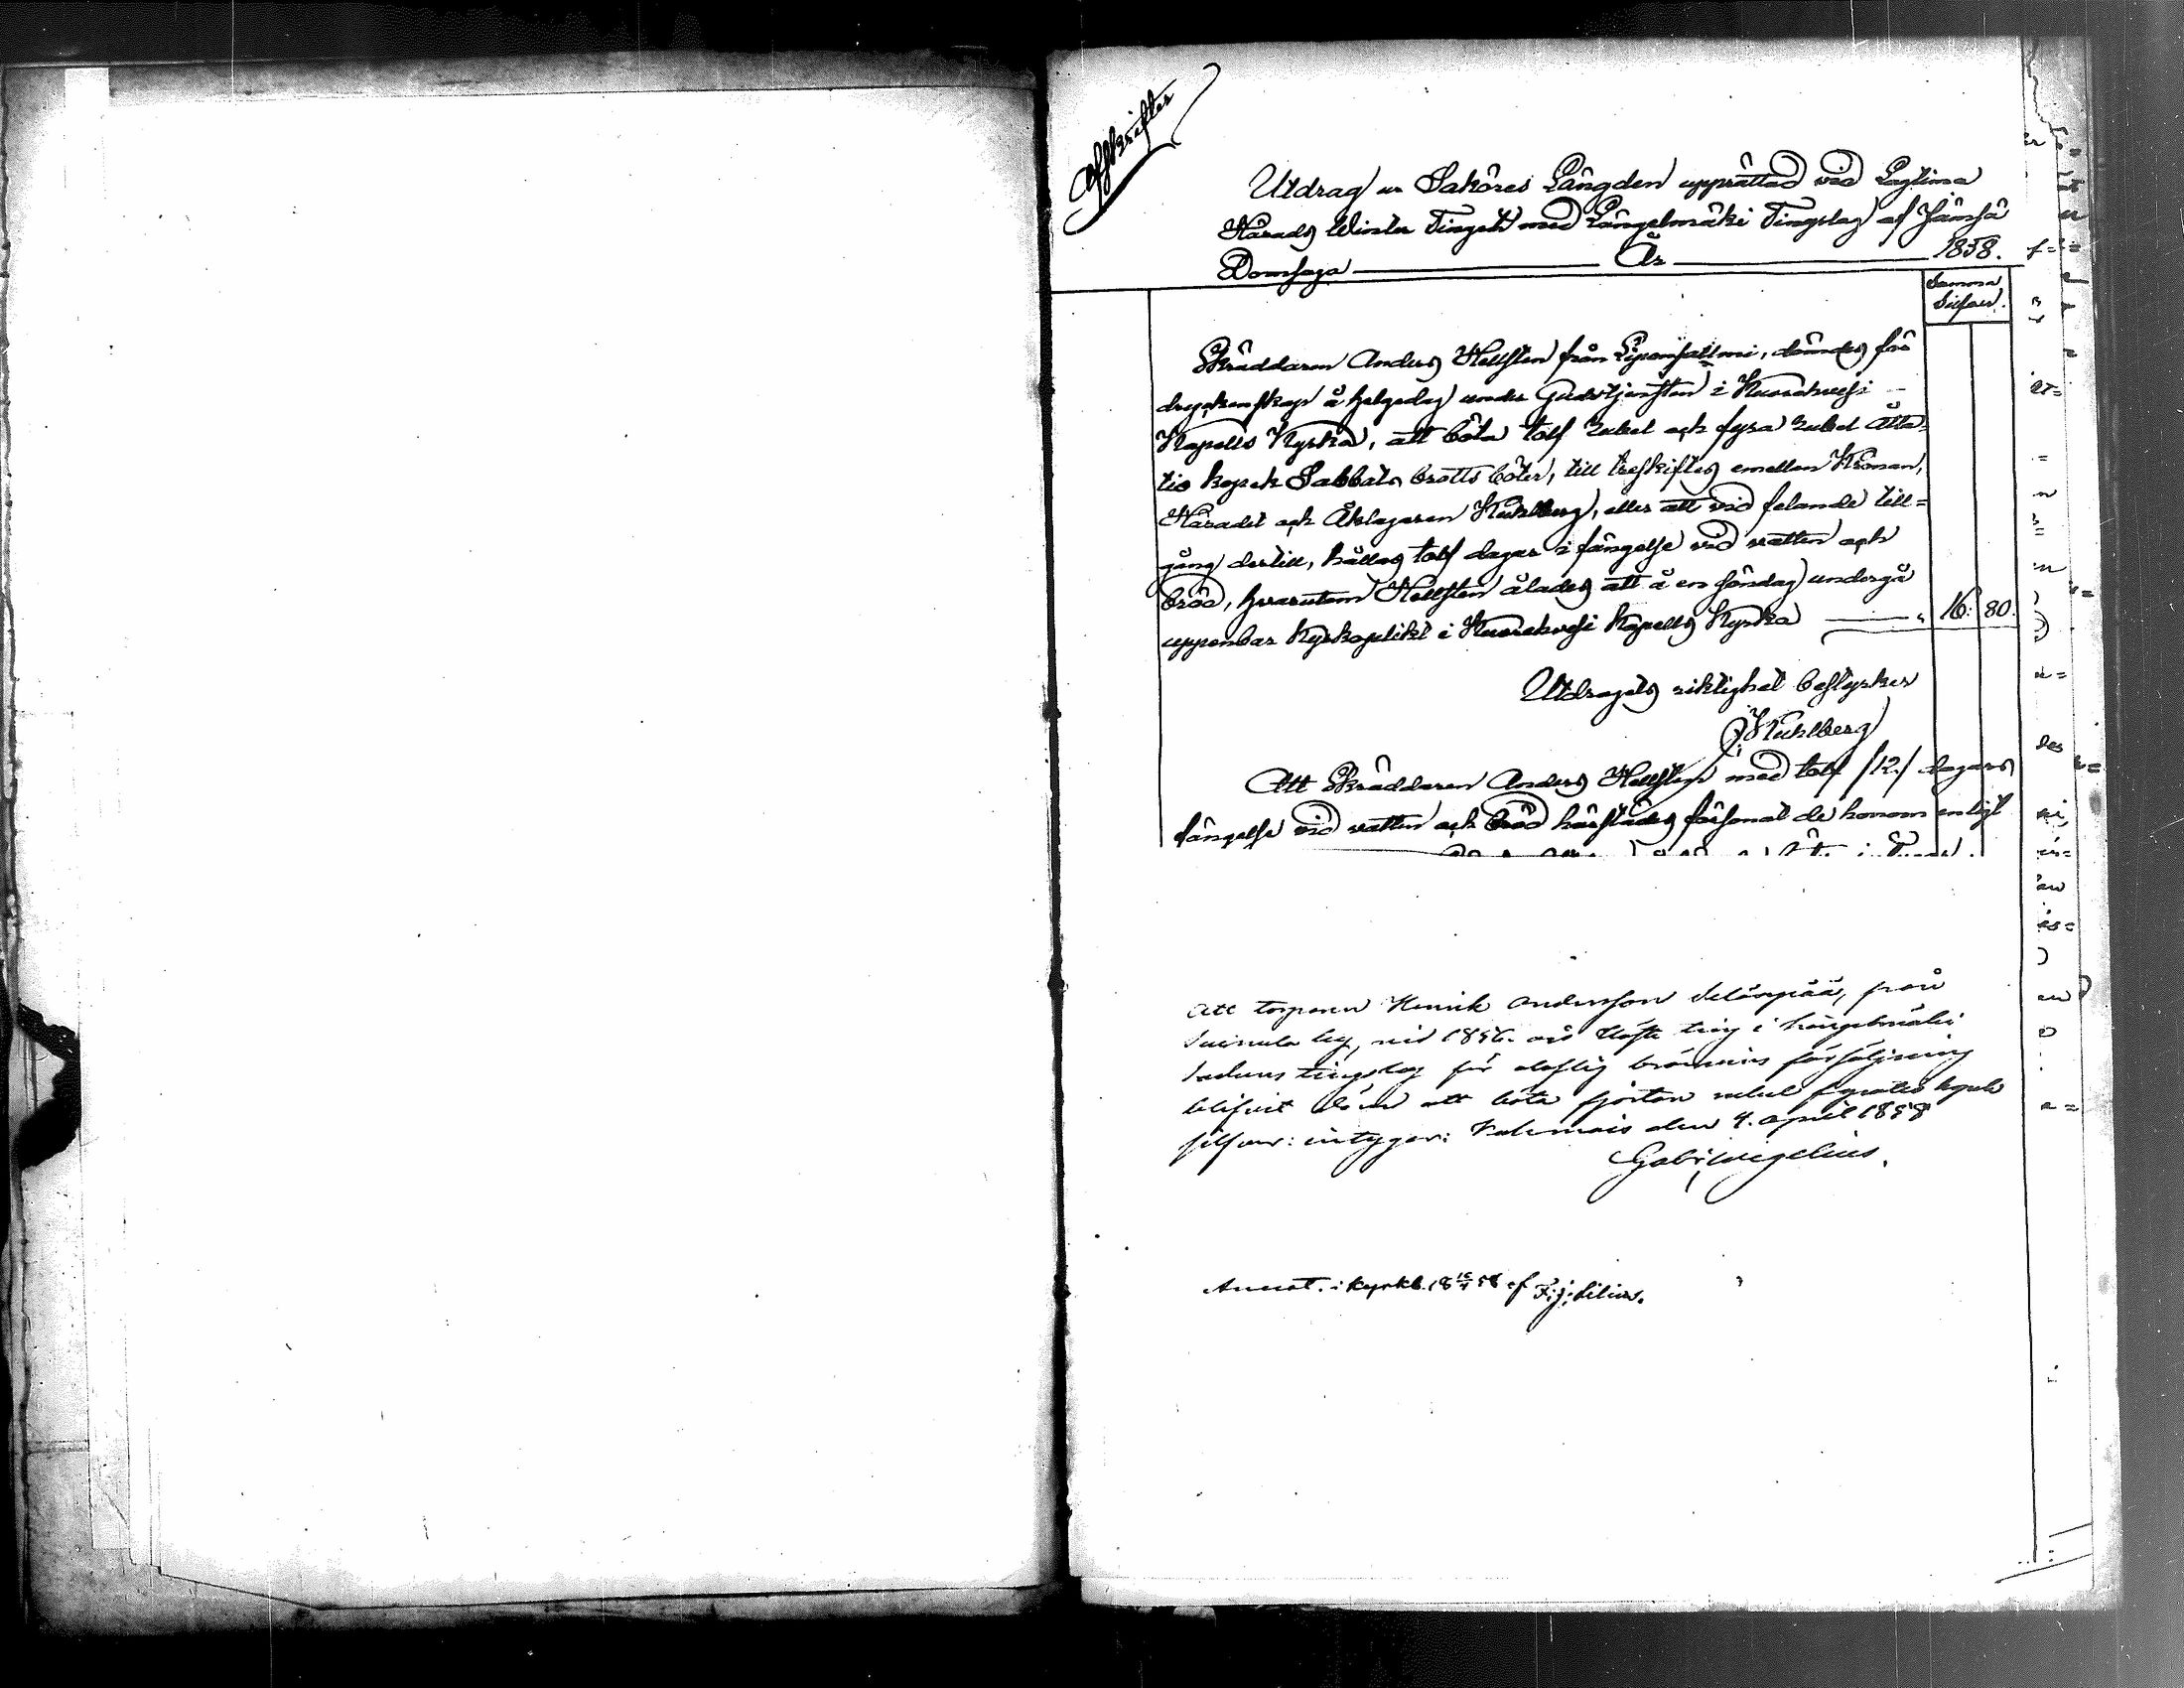 Afskrifter
Utdrag ur Saköres Längden upprättad vid Lagtima
Härads Winter Tinget med Längelmäki Tingslag af Jämsä
Domsaga År 1858.
Summa
Silfver.
Skräddaren Anders Hellsten från, dömdes för
dryckenskap å helgedag under Gudstjensten i Kuorehvesi
Kapells Kyrka, att böta tolf rubel och fyra rubel åtta-
tio kopek Sabbats brotts böter, till treskiftes emellan Kronan,
Häradet och Åklagaren Kuhlberg, eller att vid felande till=
gång dertill, hållas tolf dagar i fängelse vid vatten och
bröd, hvarutom Hellsten ålades att å en söndag undergå
uppenbar Kyrkoplikt i Kuorehvesi Kapells Kyrka " 16: 80:
Utdragets riktighet bestyrker
J: Kuhlberg
Att Skräddaren Anders Hellsten med tolf /12./ dagars
fängelse vid vatten och bröd härstädes försonat de honom enligt
Att torparen Henrik Andersson, från
by, vid 1856 års Höste ting i Längelmäki
sockens tingslag för olaflig brännvins försäljning
blifvit dömd att böta fjorton rubel fyratio kopek
silfver: intygar: den 4. April 1858
Gabr. Wegelius.
Annot. i kyrkb. 18 58 af